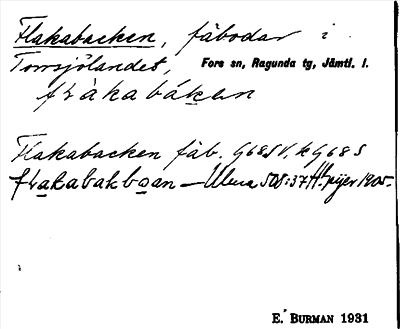 Flakabacken, fäbodar i
Torrsjölandet, Fors sn, Ragunda tg, Jämtl. l.
flàkabáken
Flakabacken fäb. G68SV, k G68S
flakabakboan — Ulma 508:37 H. Geijer 1905.
E. BURMAN 1931